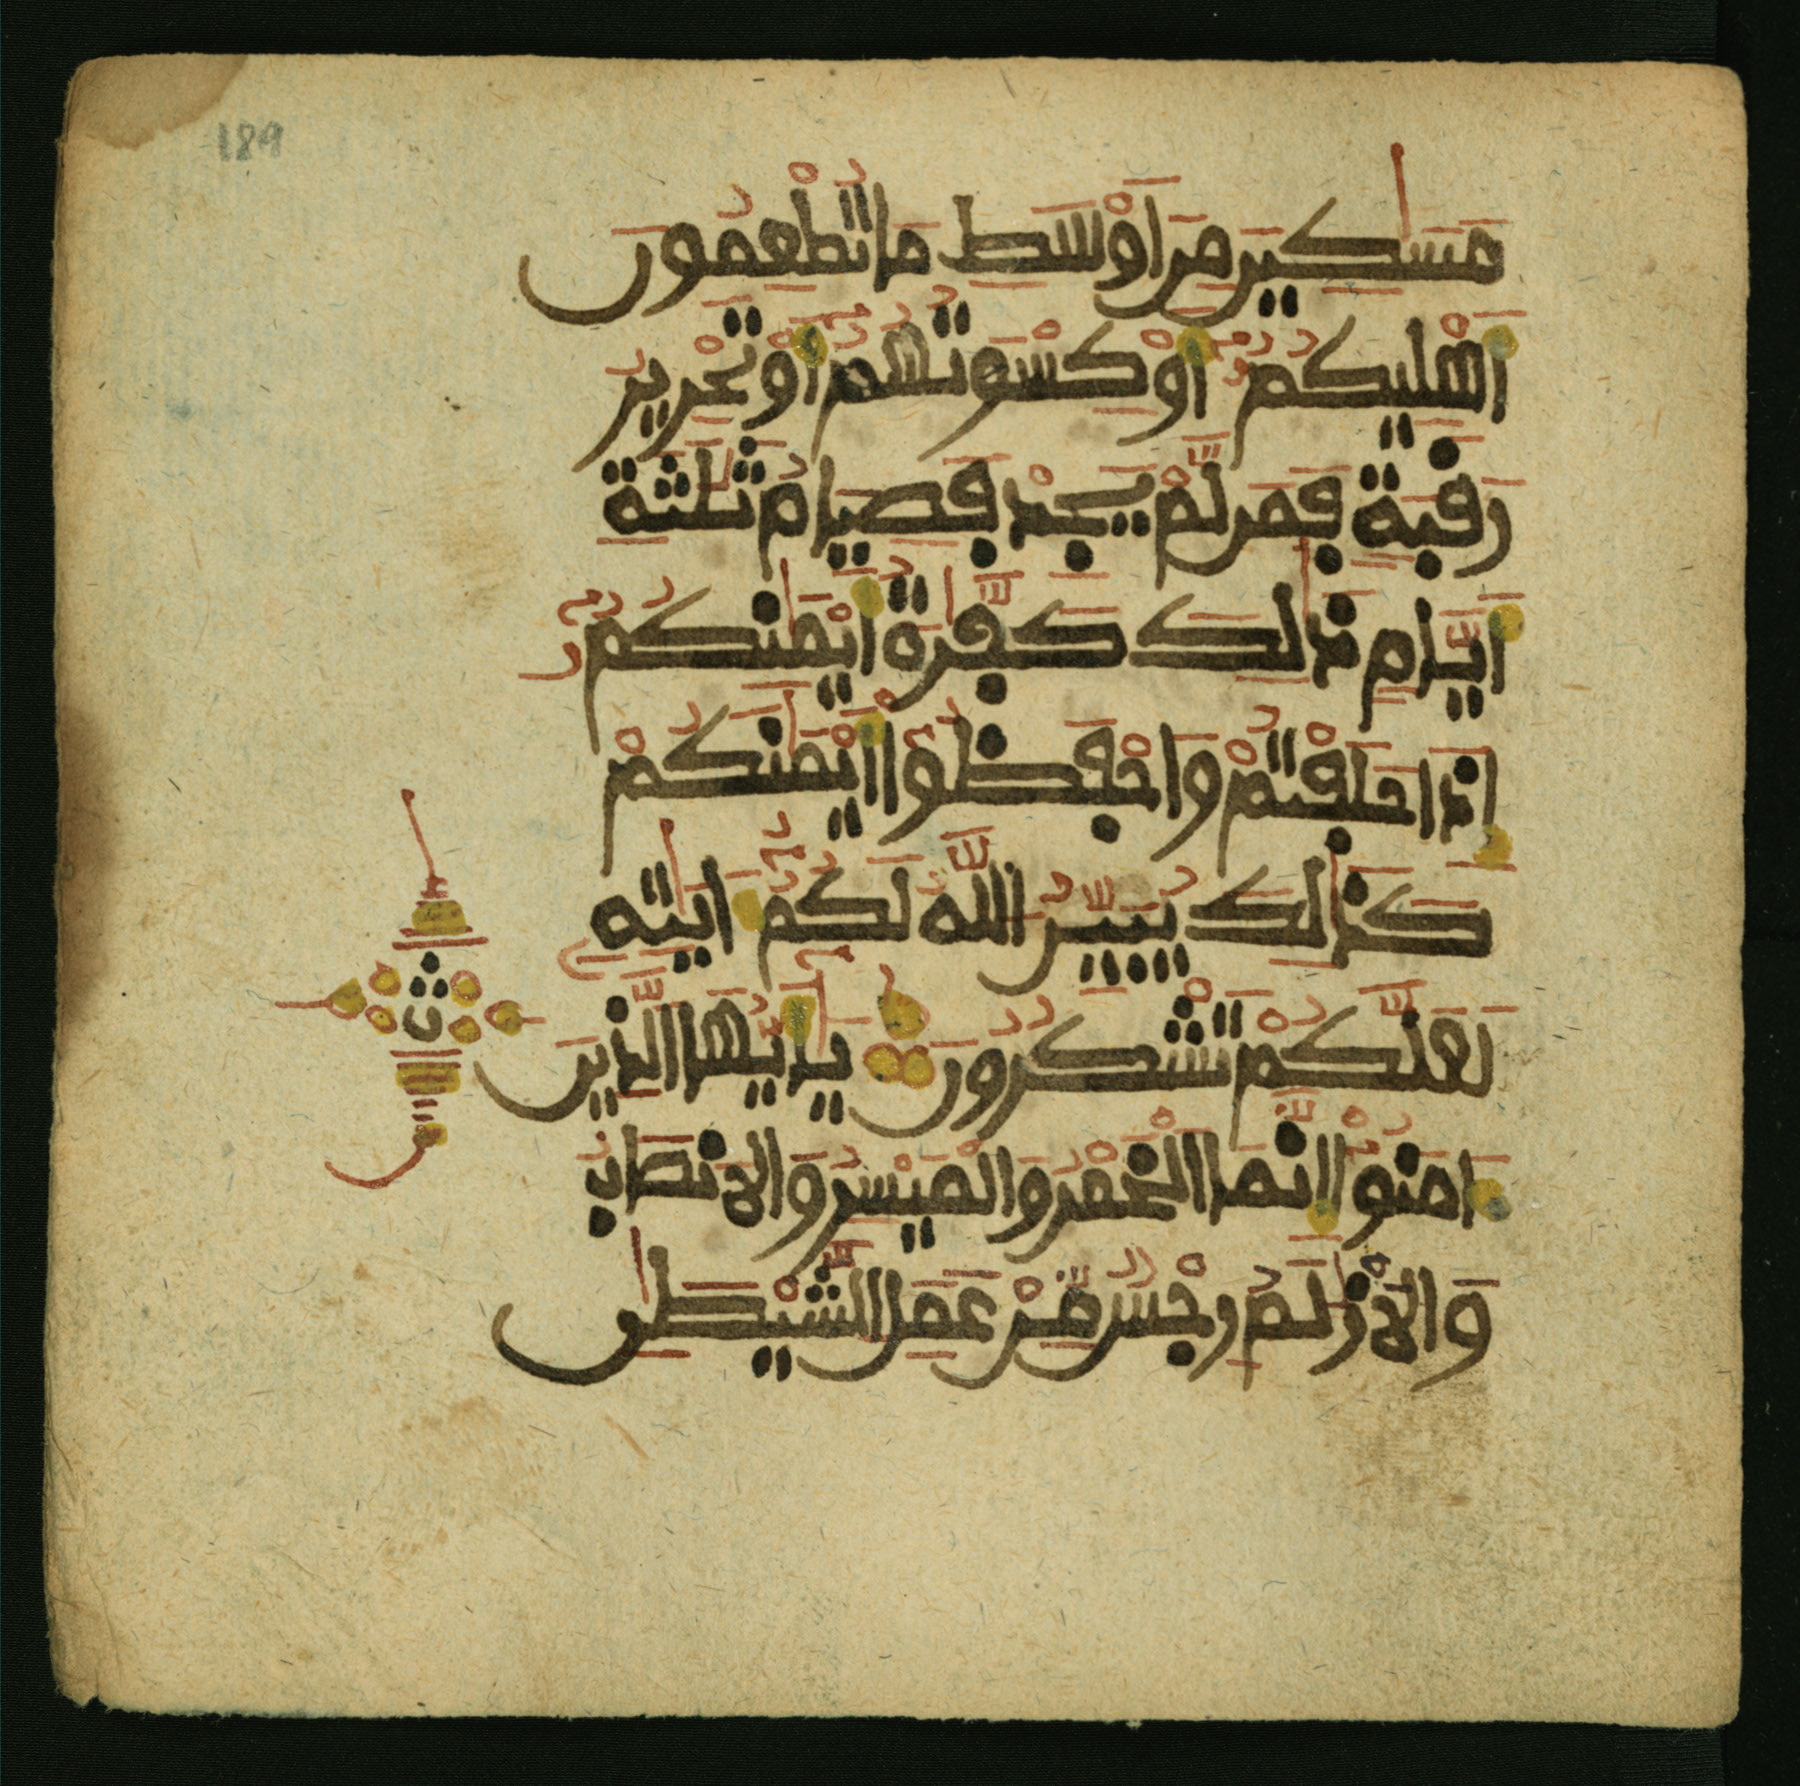 189
مَسَٰكِينَ مِنَ اَوْسَطِ مَا تُطْعِمُونَ
أَهْلِيكُمُۥٓ أَوْ كِسْوَتُهُمُۥٓ أَوْ تَحْرِيرُ
رَقَبَةٍ فَمَن لَّمْ يَجِدْ فَصِيَامُ ثَلَٰثَةِ
أَيَّامٍ ذَٰلِكَ كَفَّٰرَةُ أَيْمَٰنِكُمُۥٓ
إِذَا حَلَفْتُمْ وَاحْفَظُوٓا أَيْمَٰنَكُمْ
كَذَٰلِكَ يُبَيِّنُ اللَّهُ لَكُمُۥٓ ءَايَٰتِهِۦ
لَعَلَّكُمْ تَشْكُرُونَ يَٰٓأَيُّهَا الَّذِينَ
ءَامَنُوٓا إِنَّمَا الْخَمْرُ وَالْمَيْسِرُ وَالْأَنصَابُ
وَالْأَزْلَٰمُ رِجْسٌ مِّنْ عَمَلِ الشَّيْطَٰنِ
ث